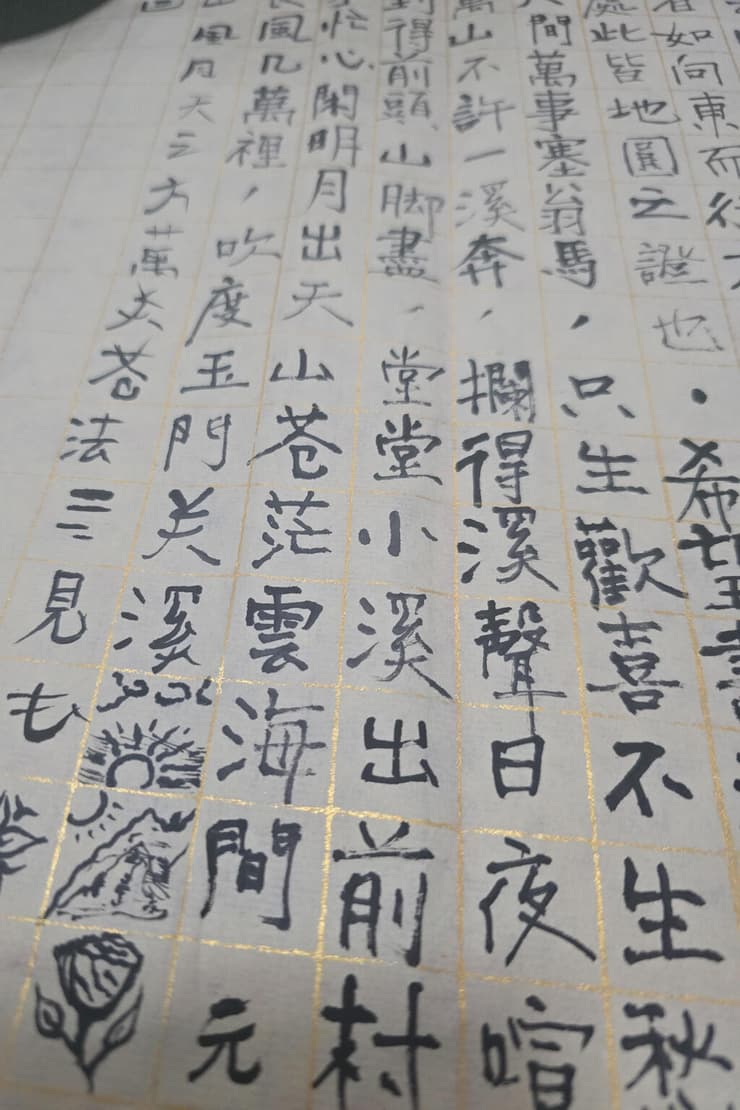 如向東而行
處此皆地圓之證也。希望壽
人間萬事塞翁馬，只生歡喜不生秋
萬山不許一溪奔，攔得溪聲日夜喧
到得前頭山脚盡，堂堂小溪出前村
忙心閑明月出天山苍茫雲海間元
長風几萬裡，吹度玉門关溪
風月天三方萬苍法三見も